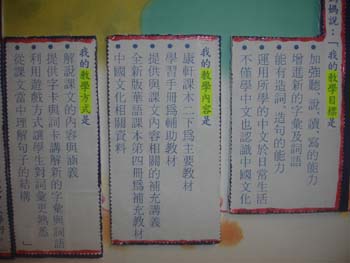 媽說：「我的教學目標是
加強聽、說、讀、寫的能力
增進新的字彙及詞語
能有造詞、造句的能力
運用所學的中文於日常生活
不僅學中文也認識中國文化
我的教學內容是
康軒課本二下為主要教材
學習手冊為輔助教材
提供與課文內容相關的補充講義
全新版華語課本第四冊為補充教材
中國文化相關資料
我的教學方式是
解說課文的內容與涵義
提供字卡與詞卡講解新的字彙與詞語
利用遊戲方式讓學生對詞彙更熟悉
從課文當中理解句子的結構……」